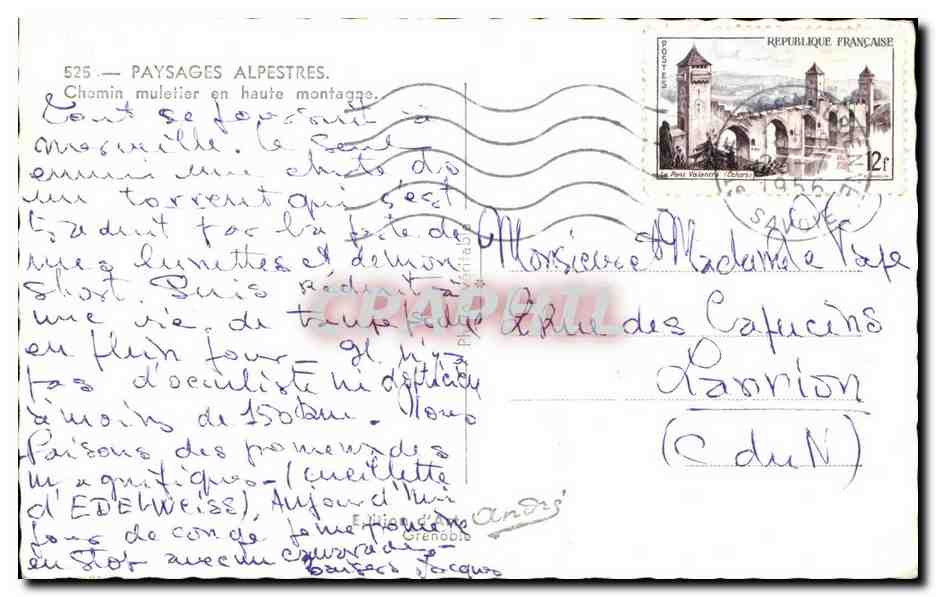 525.— PAYSAGES ALPESTRES.
Chemin muletier en haute montagne.
Tout se poursuit à
merveille. le seul
ennui une chute ds
un torrent qui s'est
traduit par la perte de
mes lunettes et de mon
short. Suis réduit à
une vie de taupe
en plein jour - Il n'y a
pas d'oculiste ni d'opticien
à moins de 150 km. Nous
faisons des promenades
magnifiques - (cueillette
d'EDELWEISS). Aujourd'hui
jour de congé je me promène
en stop avec un camarade -
Baisers Jacques
Photo Véritable
Edition d'Art
André
Grenoble
POSTES
REPUBLIQUE FRANÇAISE
Le Pont Valentré (Cahors)
12f
1955
SAVOIE
Monsieur et Madame Le Pape
Rue des Capucins
Lannion
(C du N)
CPAPHIL